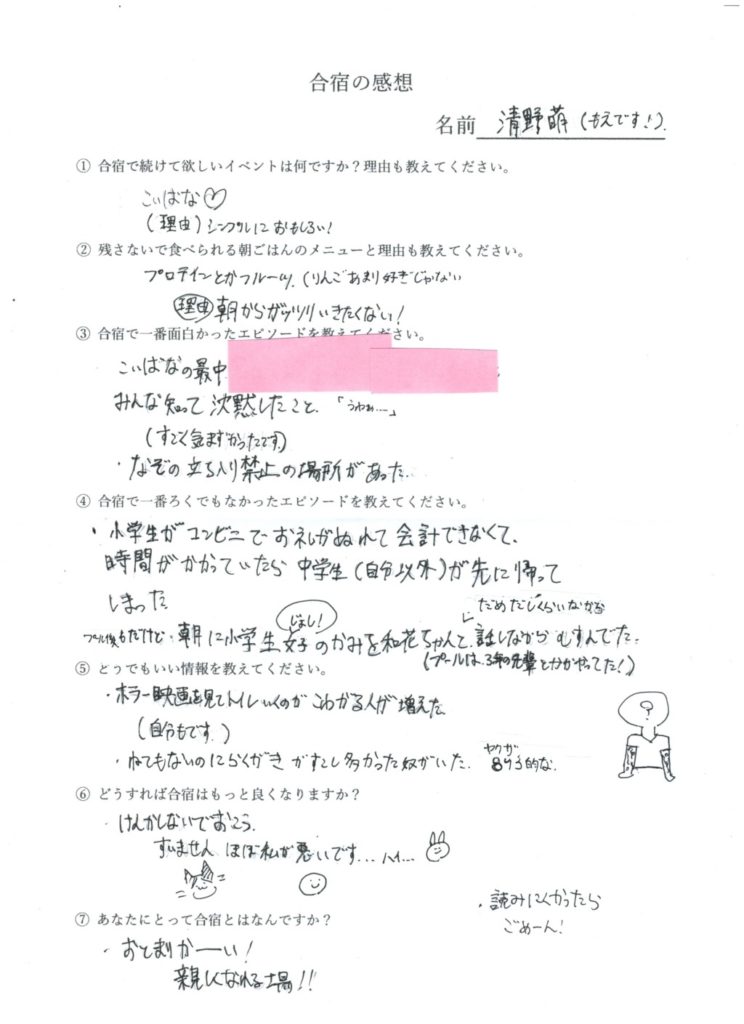 合宿の感想
名前 清野萌(もえです!).
① 合宿で続けて欲しいイベントは何ですか?理由も教えてください。
こいばな♡
(理由)シンプルにおもしろい!
② 残さないで食べられる朝ごはんのメニューと理由も教えてください。
プロテインとかフルーツ.(りんごあまり好きじゃない
理由 朝からガッツリいきたくない!
③ 合宿で一番面白かったエピソードを教えてください。
こいばなの最中
みんな知って沈黙したこと.「うわぁ……」
(すごく気まずかったです)
・なぞの立ち入り禁止の場所があった.
④ 合宿で一番ろくでもなかったエピソードを教えてください。
・小学生がコンビニでおさつがぬれて会計できなくて、
時間がかかっていたら中学生(自分以外)が先に帰って
しまった
じょし!
だめだしくらいながら
プール後もだけど・朝に小学生女子のかみを和花ちゃんと、話しながらむすんでた.
(プールは、3年の先輩とかがやってた!)
⑤ どうでもいい情報を教えてください。
・ホラー映画を見てトイレいくのがこわがる人が増えた
(自分もです.)
・ねてもないのにらくがきがすこし多かった奴がいた.
ヤクザ
893的な.
⑥ どうすれば合宿はもっと良くなりますか?
・けんかしないでおこう.
すいません ほぼ私が悪いです...ハイ...
・読みにくかったら
ごめーん!
⑦ あなたにとって合宿とはなんですか?
・おとまりかーい!
親しくなれる場!!